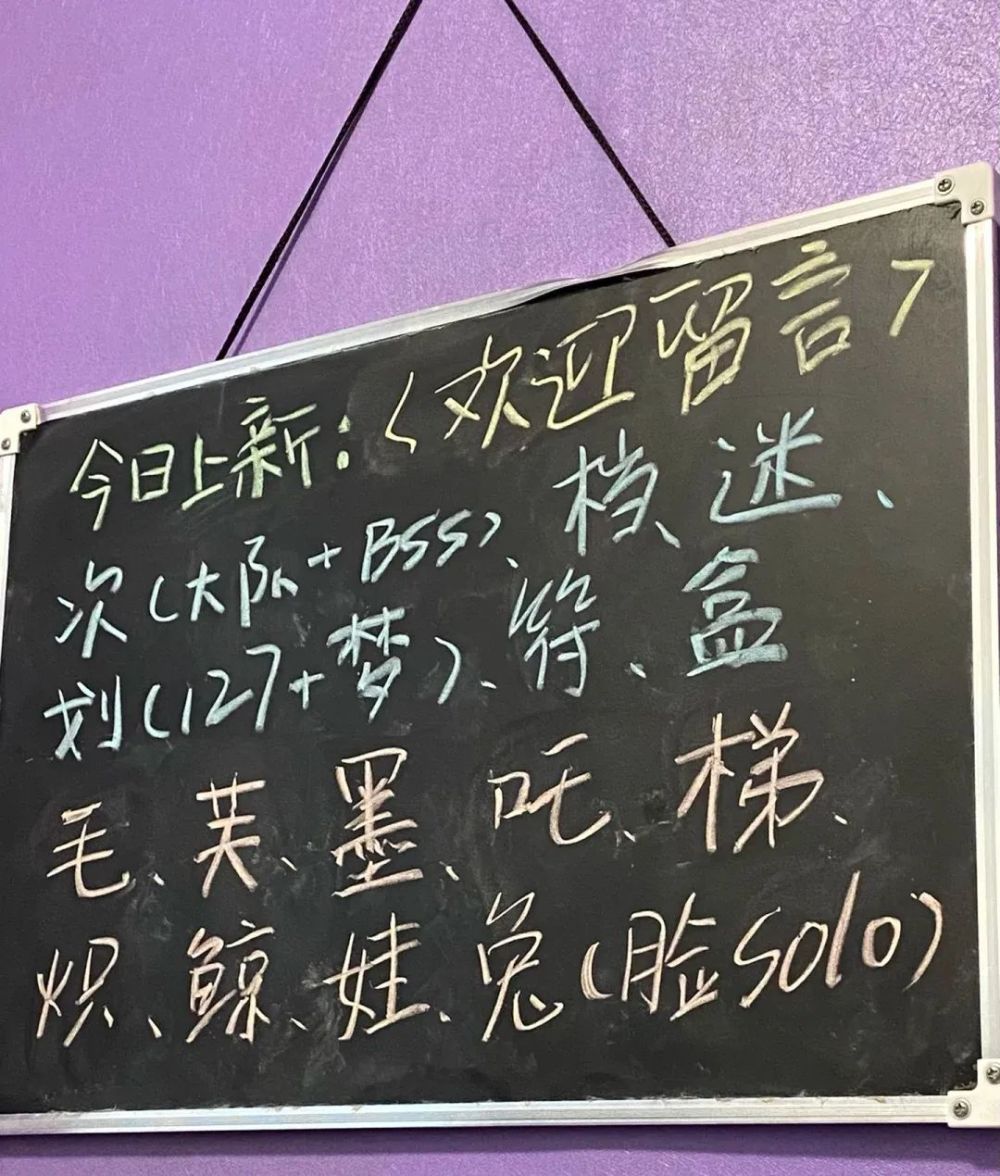 今日上新:<欢迎留言>
次(大队+BSS)、档、迷、
划(127+梦)、符、盒
毛、芙、墨、吒、梯、
炽、鲸、娃、兔(脸solo)